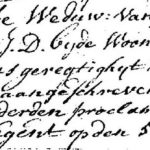 de Weduw: van
J. D. bijde Woon
s geregtigheijt
aangeschreven
derden proclam
egent op den 5